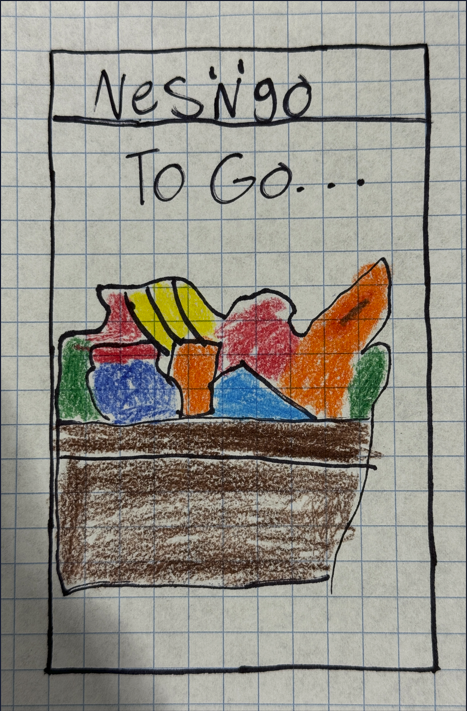 NeS'N'go
To Go...